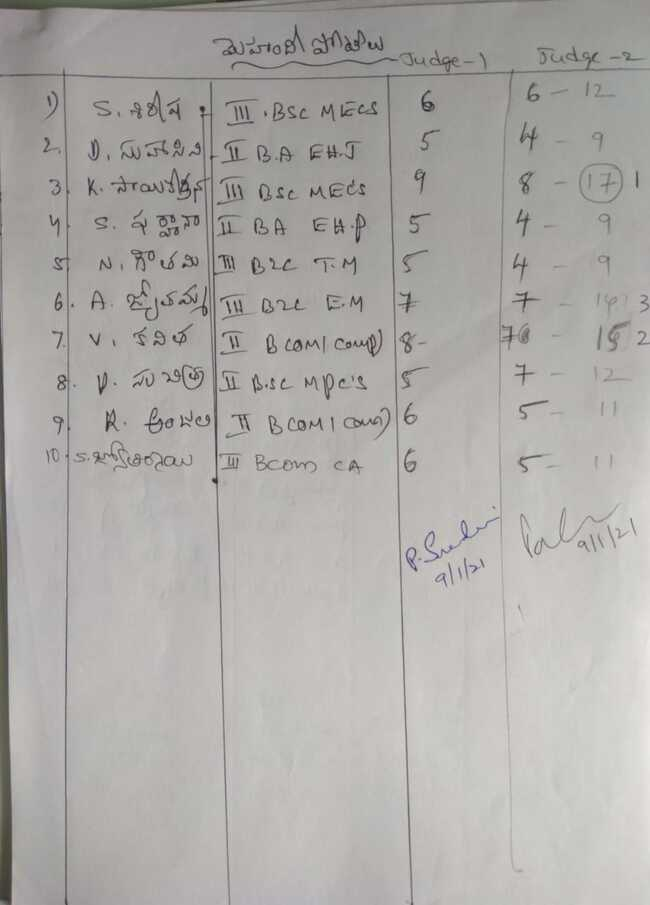 మెహందీ పోటీలు
Judge-1 Judge-2
1) S. శిరీష III. BSC MECS 6 6 - 12
2. D. సుహాసిని II B.A EHJ 5 4 - 9
3. K. III BSC MECS 9 8 - 17 1
4. S. II BA EH.P 5 4 - 9
5. N. గౌతమి III BZC T.M 5 4 - 9
6. A. III BZC E.M 7 7 - 14 3
7. V. కవిత II BCOM(comp) 8- 7 - 15 2
8. D. సుచిత్రా II B.SC MPC'S 5 7 - 12
9. R. అంజలి II BCOM(comp) 6 5 - 11
10. S. III BCOM CA 6 5 - 11
9/1/21 9/1/21